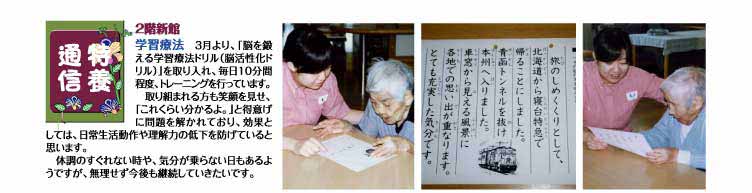 特養
通信
2階新館
学習療法　3月より、「脳を鍛
える学習療法ドリル(脳活性化ド
リル)」を取り入れ、毎日10分間
程度、トレーニングを行っています。
　取り組まれる方も笑顔を見せ、
「これくらい分かるよ。」と得意げ
に問題を解かれており、効果と
しては、日常生活動作や理解力の低下を防げていると
思います。
　体調のすぐれない時や、気分が乗らない日もあるよ
うですが、無理せず今後も継続していきたいです。
旅のしめくくりとして、
北海道から寝台特急で
帰ることにしました。
青函トンネルを抜け
本州へ入りました。
車窓から見える風景に
各地での思い出が重なります。
とても充実した気分です。